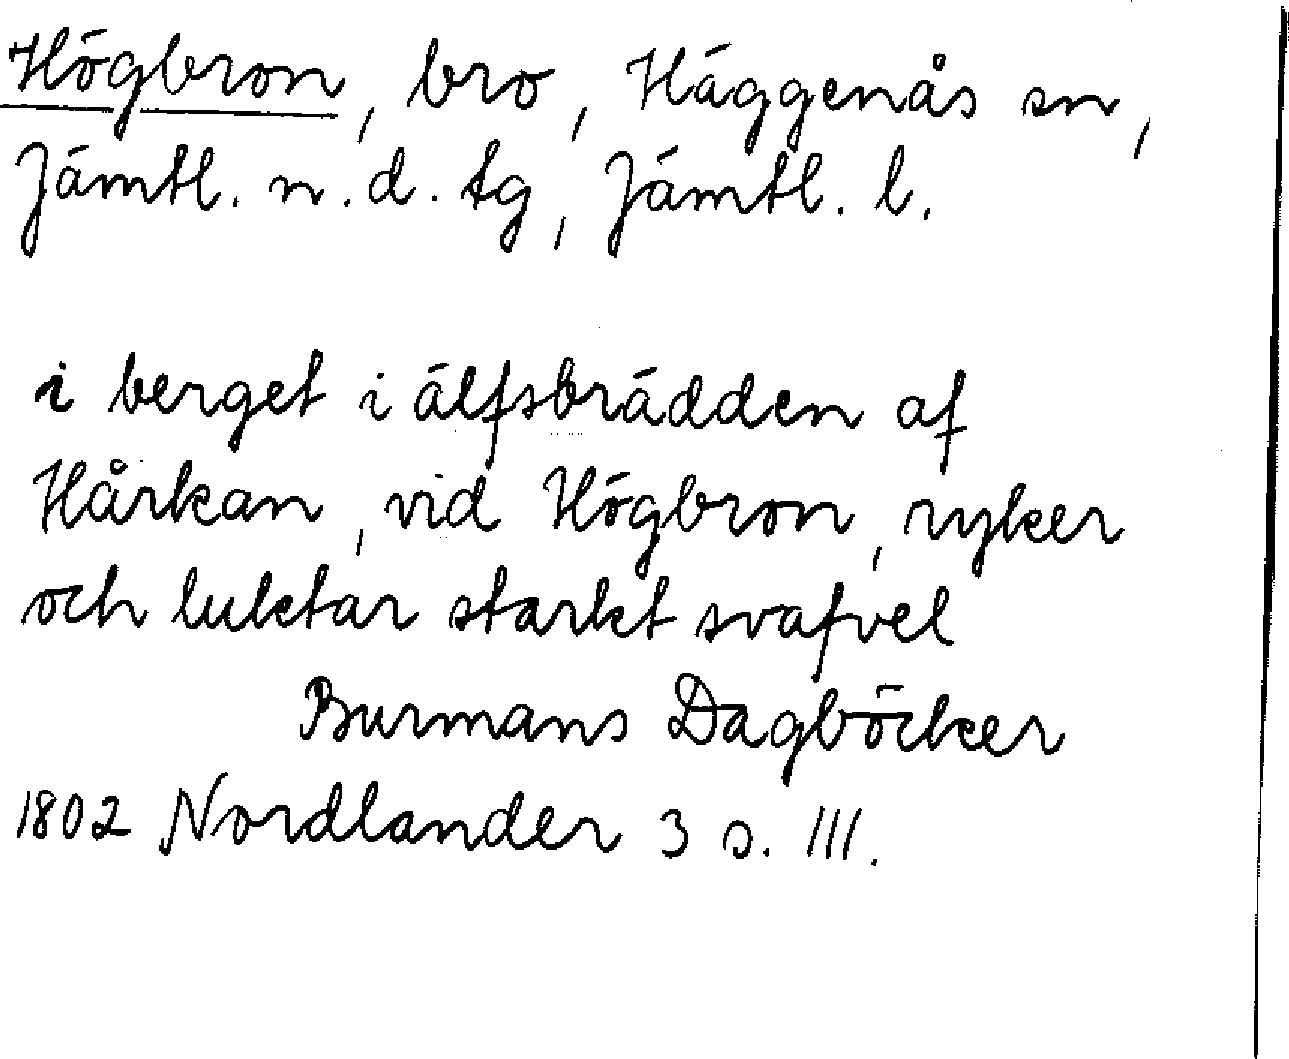 Högbron, bro, Häggenås sn,
Jämtl. n. d. tg, Jämtl. l.
i berget i älfsbrädden af
Hårkan, vid Högbron, ryker
och luktar starkt svafvel
Burmans Dagböcker
1802 Nordlander 3 s. 111.